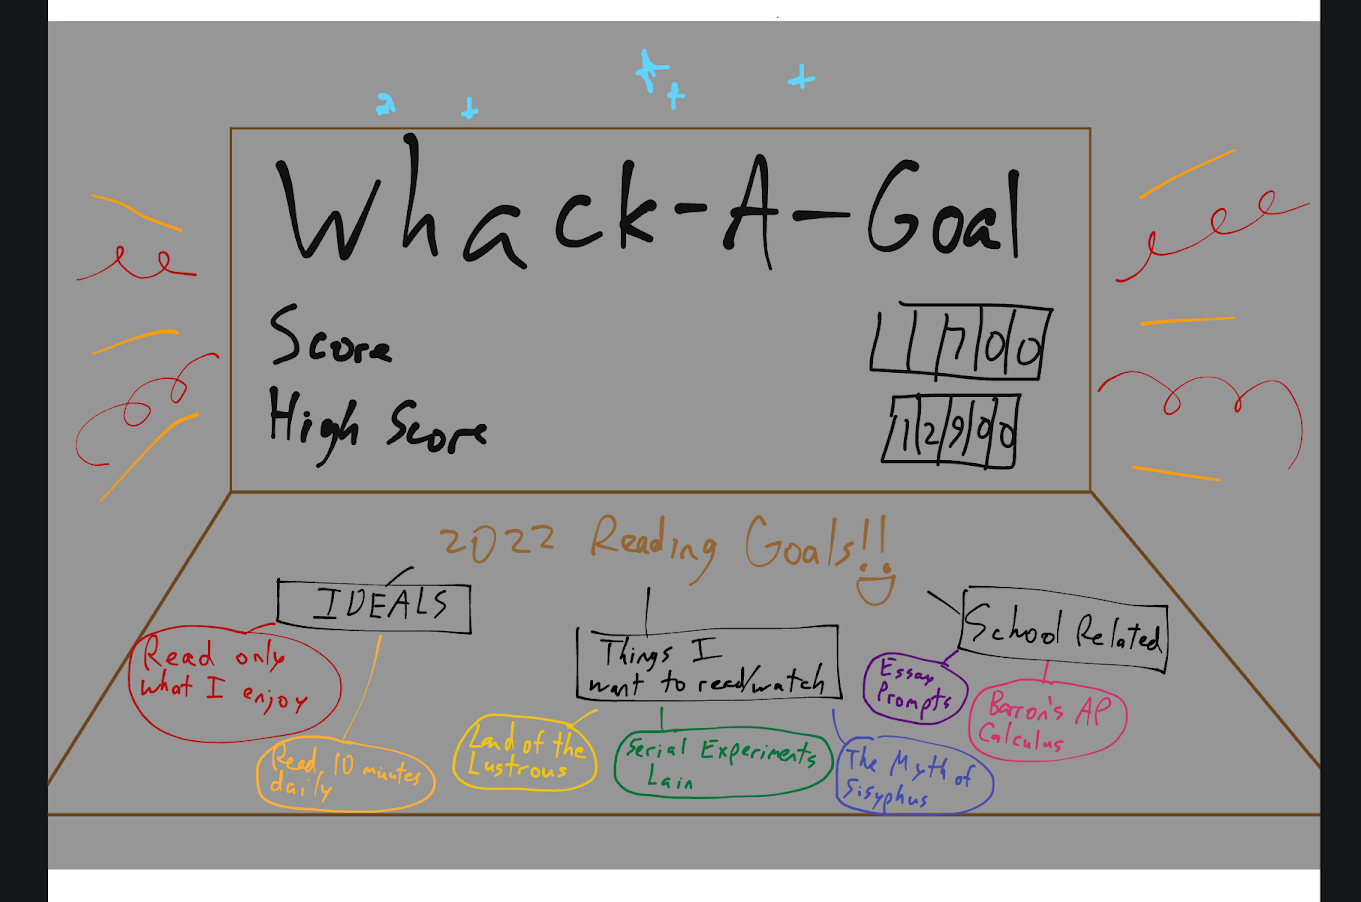 Whack-A-Goal
Score 1700
High Score 12900
2022 Reading Goals!!
IDEALS
Read only
what I enjoy
Read 10 minutes
daily
Things I
want to read/watch
Land of the
Lustrous
Serial Experiments
Lain
The Myth of
Sisyphus
School Related
Essay
Prompts
Barron's AP
Calculus